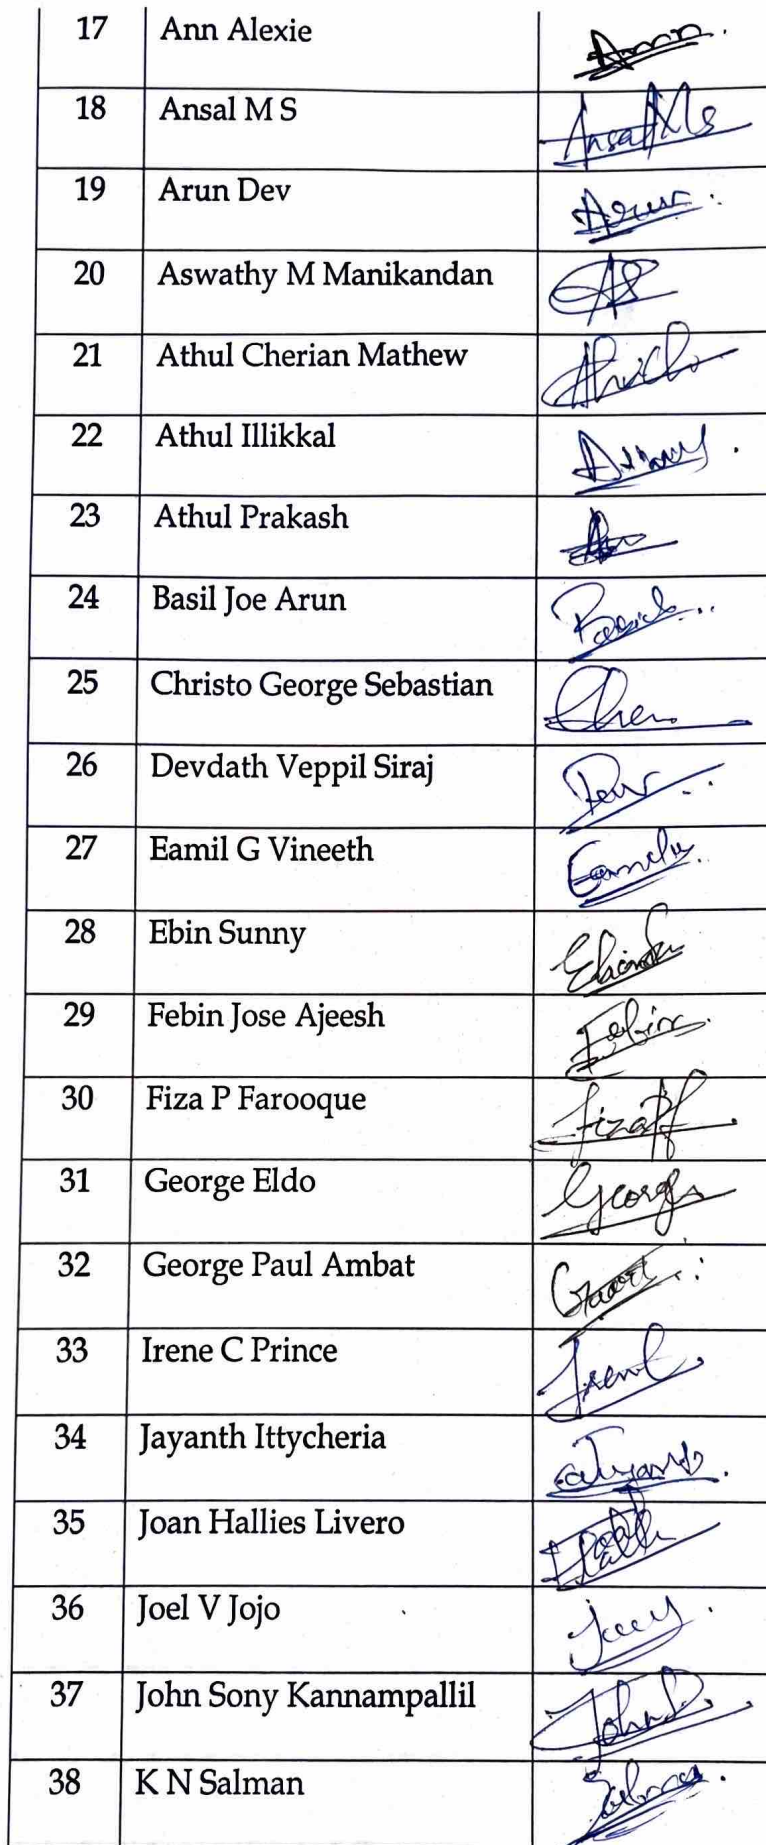 17 Ann Alexie Ann.
18 Ansal M S Ansal Ms
19 Arun Dev Arun.
20 Aswathy M Manikandan
21 Athul Cherian Mathew
22 Athul Illikkal
23 Athul Prakash
24 Basil Joe Arun
25 Christo George Sebastian
26 Devdath Veppil Siraj
27 Eamil G Vineeth
28 Ebin Sunny
29 Febin Jose Ajeesh Febin.
30 Fiza P Farooque Fiza Pf
31 George Eldo
32 George Paul Ambat
33 Irene C Prince
34 Jayanth Ittycheria
35 Joan Hallies Livero
36 Joel V Jojo
37 John Sony Kannampallil
38 K N Salman